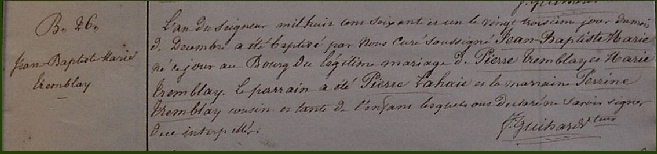 B. 26.
Jean-Baptiste Marie
Tremblay
L'an du Seigneur mil huit cent soixante et un le vingt troisieme jour du mois
de Decembre a été baptisé par Nous Curé soussigné Jean-Baptiste Marie
né ce jour au Bourg du légitime mariage de Pierre Tremblay et Marie
Tremblay. Le parrain a été Pierre Lahaie et la marraine Serine
Tremblay cousin et tante de l'enfant lesquels ont déclaré ne savoir signer
de ce interpellés.
J. Guihard